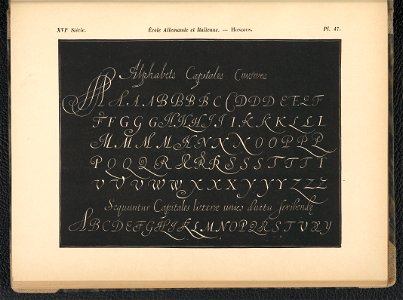 XVIe Siècle. École Allemande et Italienne. — Hondius. Pl. 47.
Alphabets Capitales Cursives
A A A B B B B C C D D D E E E F
F F G G G H H H H I I K K K L L L
M M M M M N N X X O O P P P
P Q Q R R R R S S S T T T T
V V V V W W X X X X Y Y Y Z Z Z
Sequuntur Capitales litterae unico ductu scribendae
A B C D E F G H I K L M N O P Q R S T V X Y